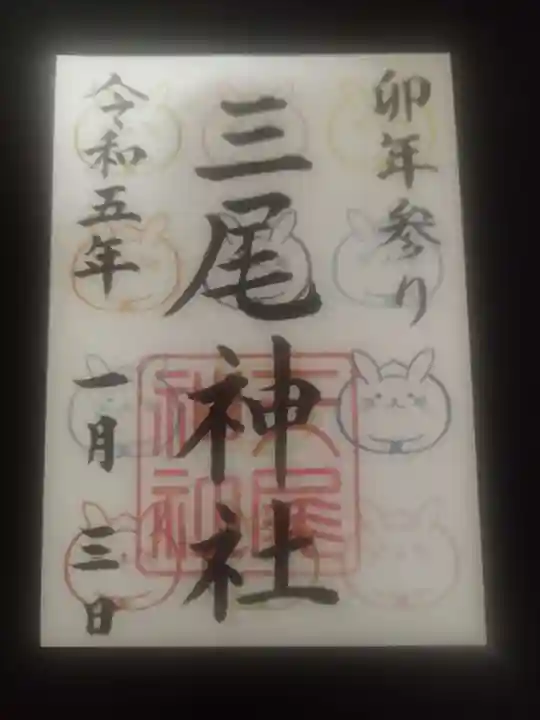 卯年参り
三尾神社
令和五年
一月三日
三尾神社